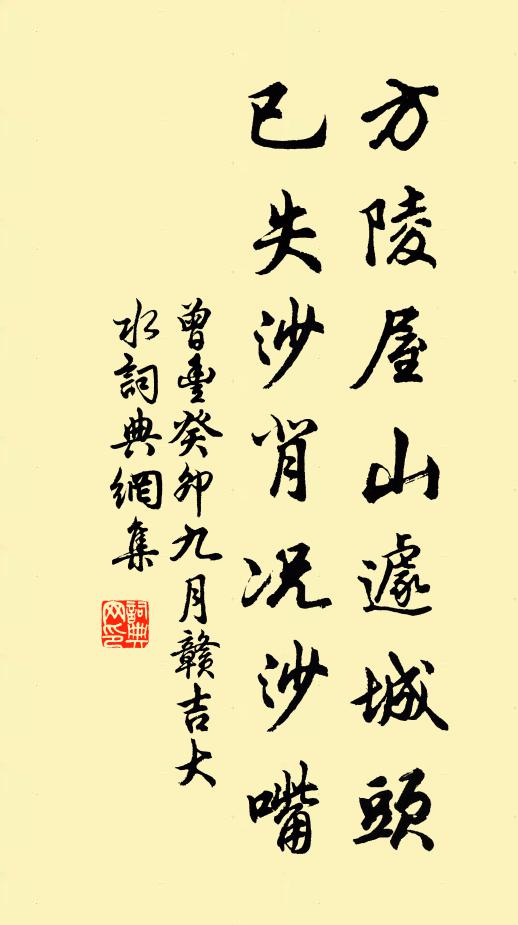 方陵屋山遽城頭
已失沙背况沙嘴
曾豊癸卯九月赣吉大
水詞典網集
詞典网印